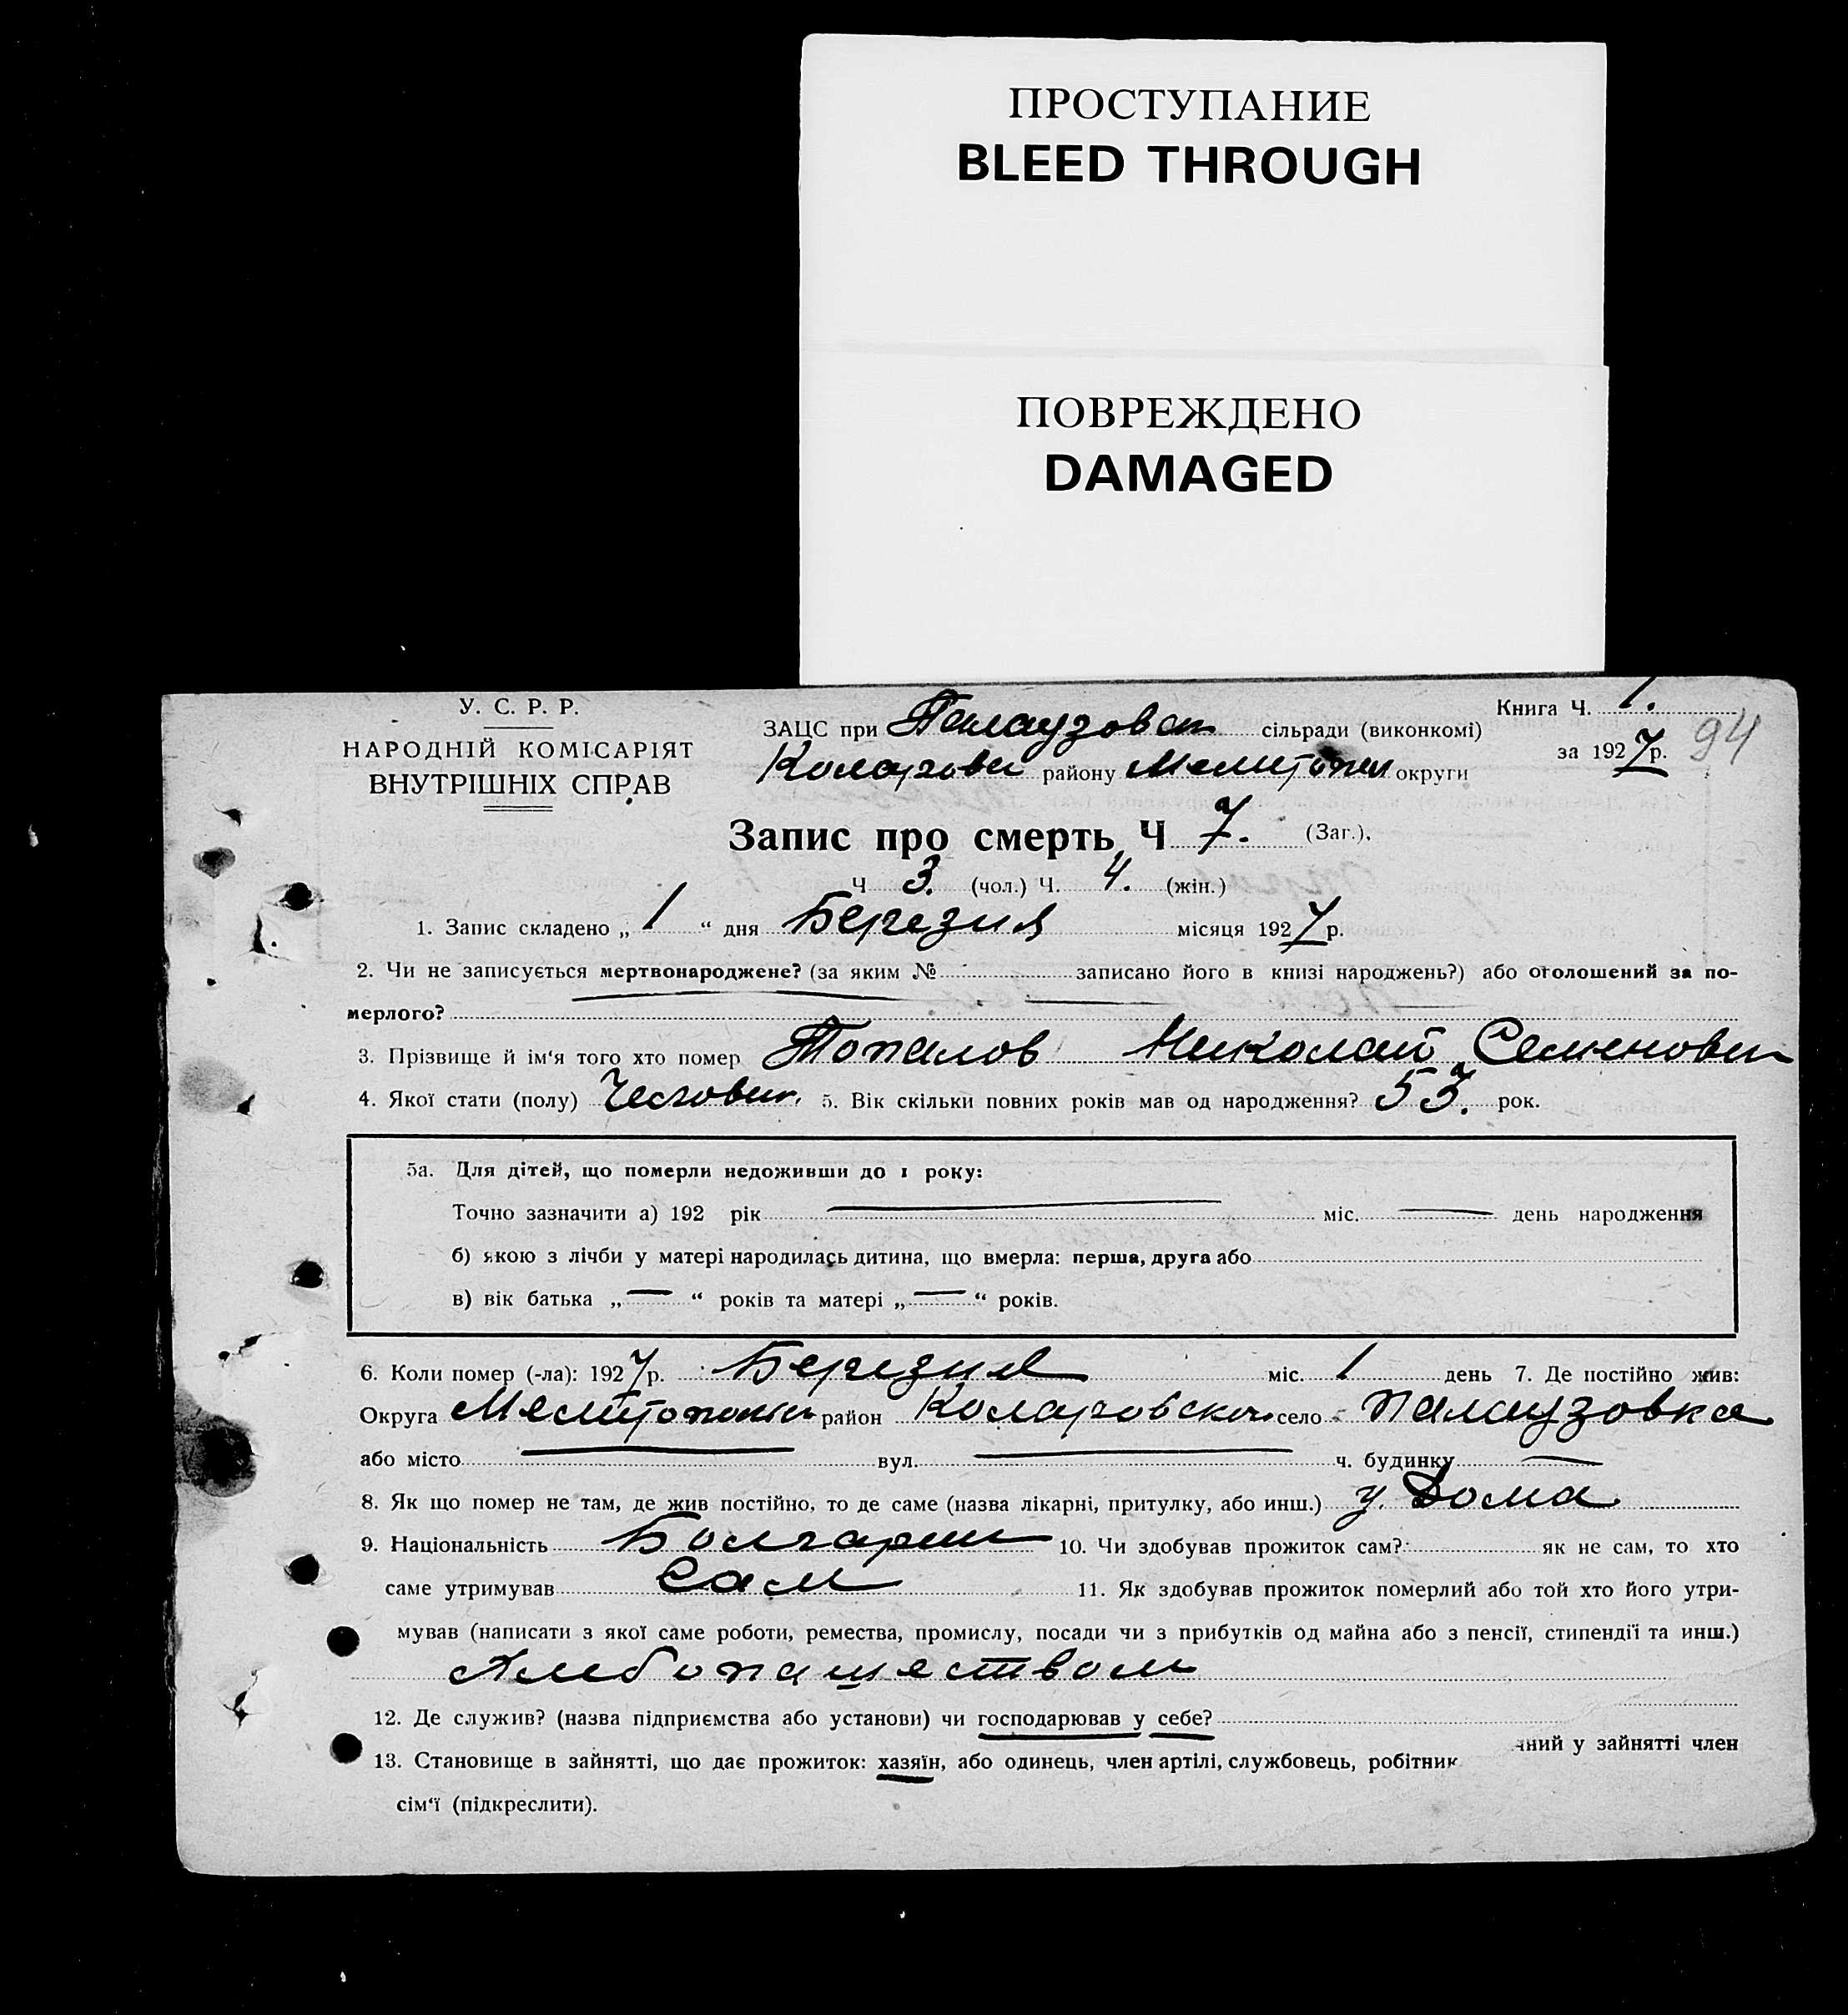 ПРОСТУПАНИЕ
BLEED THROUGH
ПОВРЕЖДЕНО
DAMAGED
У. С. Р. Р.
НАРОДНІЙ КОМІСАРІЯТ
ВНУТРІШНІХ СПРАВ
ЗАЦС при Палаузовск сільради (виконкомі)
Коларовск району Мелитопол округи
Книга Ч. 1.
за 1927 р. 94
Запис про смерть Ч 7. (Заг.).
Ч 3. (чол.) Ч. 4. (жін.)
1. Запис складено „ 1 “ дня Березня місяця 1927 р.
2. Чи не записується мертвонароджене? (за яким № записано його в книзі народжень?) або оголошений за по-
мерлого?
3. Прізвище й ім‘я того хто помер Топалов Николай Семенович
4. Якої стати (полу) 5. Вік скільки повних років мав од народження? 53. рок.
5а. Для дітей, що померли недоживши до 1 року:
Точно зазначити а) 192 рік — міс. — день народження
б) якою з лічби у матері народилась дитина, що вмерла: перша, друга або
в) вік батька „ — “ років та матері „ — “ років.
6. Коли помер (-ла): 1927 р. Березня міс. 1 день 7. Де постійно жив:
Округа район Коларовском село Палаузовка
або місто — вул. — ч. будинку —
8. Як що помер не там, де жив постійно, то де саме (назва лікарні, притулку, або инш.) у Дома
9. Національність Болгарин 10. Чи здобував прожиток сам? як не сам, то хто
саме утримував Сам 11. Як здобував прожиток померлий або той хто його утри-
мував (написати з якої саме роботи, ремества, промислу, посади чи з прибутків од майна або з пенсії, стипендії та инш.)
Хлебопашеством
12. Де служив? (назва підприємства або установи) чи господарював у себе?
13. Становище в зайнятті, що дає прожиток: хазяїн, або одинець, член артілі, службовець, робітник у зайнятті член
сім‘ї (підкреслити).